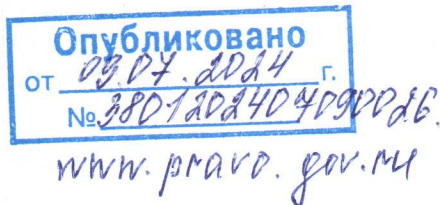 Опубликовано
от 09.07.2024 г.
№ 3801202407090026.
www.pravo.gov.ru